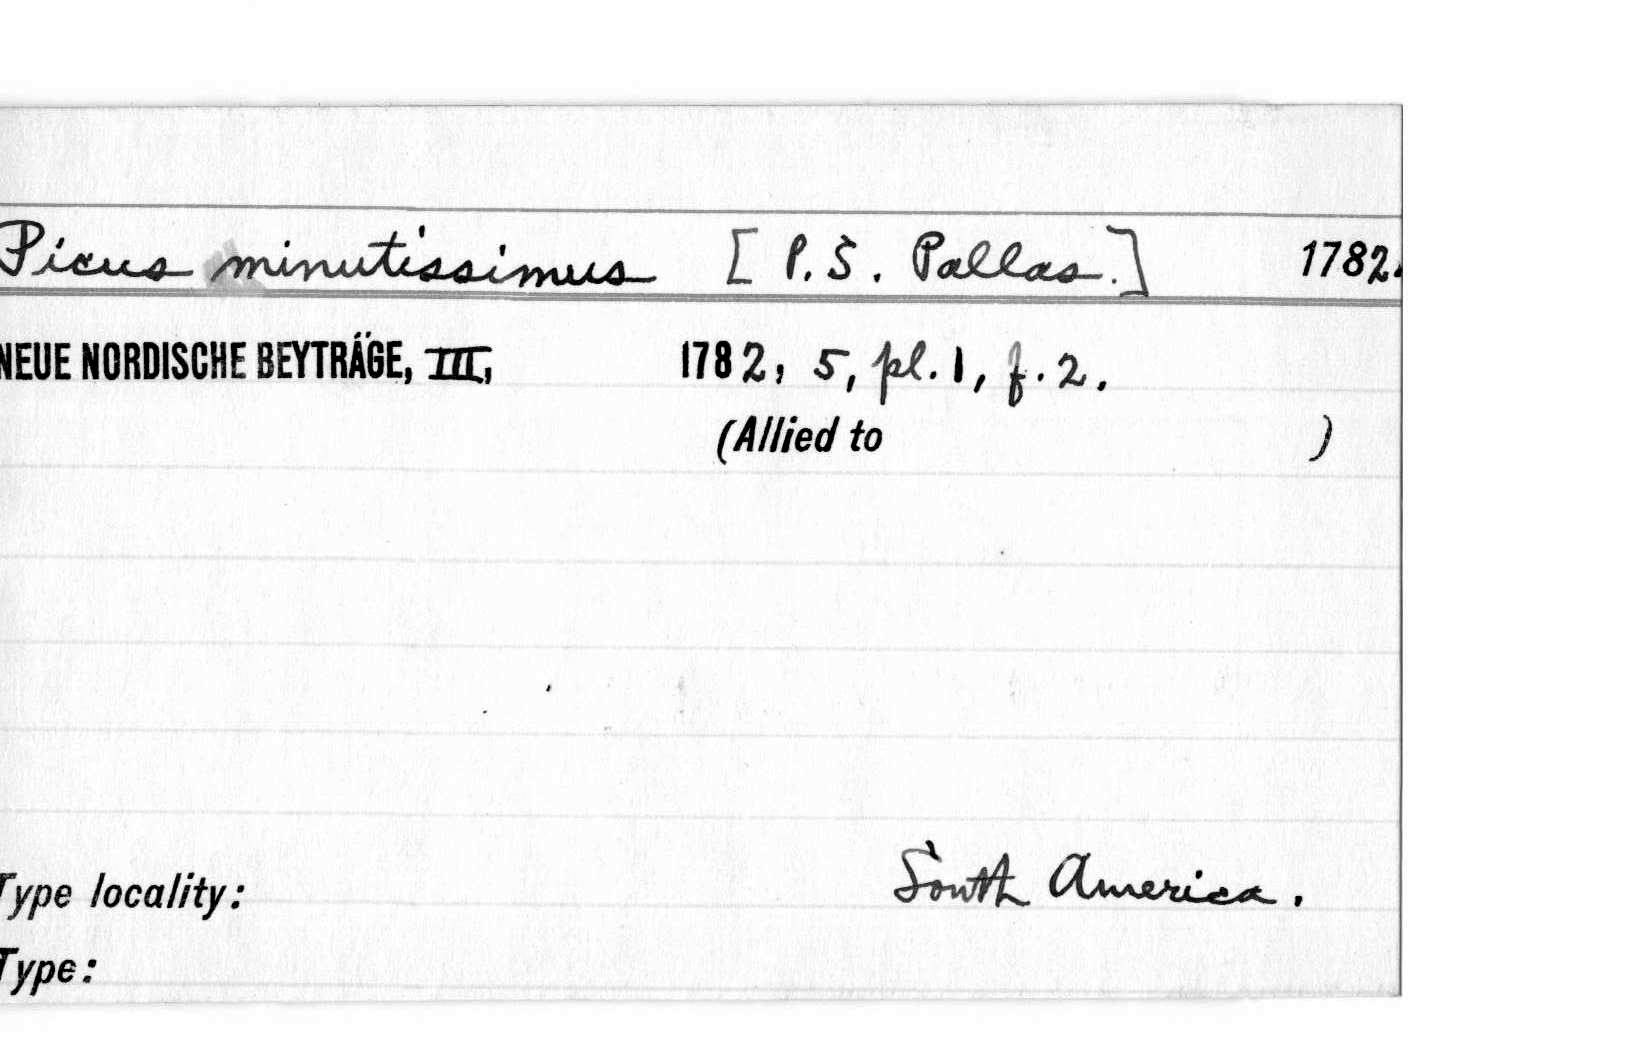 Picus minutissimus [P. S. Pallas.] 1782.
NEUE NORDISCHE BEYTRÄGE, III, 1782, 5, pl. 1, f. 2.
(Allied to )
Type locality: South America.
Type: